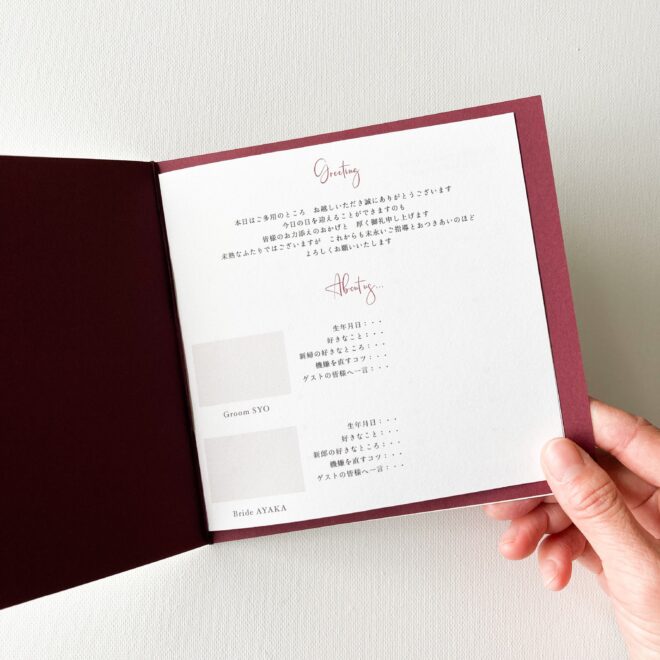 Greeting
本日はご多用のところ　お越しいただき誠にありがとうございます
今日の日を迎えることができますのも
皆様のお力添えのおかげと　厚く御礼申し上げます
未熟なふたりではございますが　これからも末永いご指導とおつきあいのほど
よろしくお願いいたします
About us...
生年月日：・・
好きなこと：・・
新婦の好きなところ：・・
機嫌を直すコツ：・・
ゲストの皆様へ一言：・・
Groom SYO
生年月日：・・
好きなこと：・・
新郎の好きなところ：・・
機嫌を直すコツ：・・
ゲストの皆様へ一言：・・
Bride AYAKA